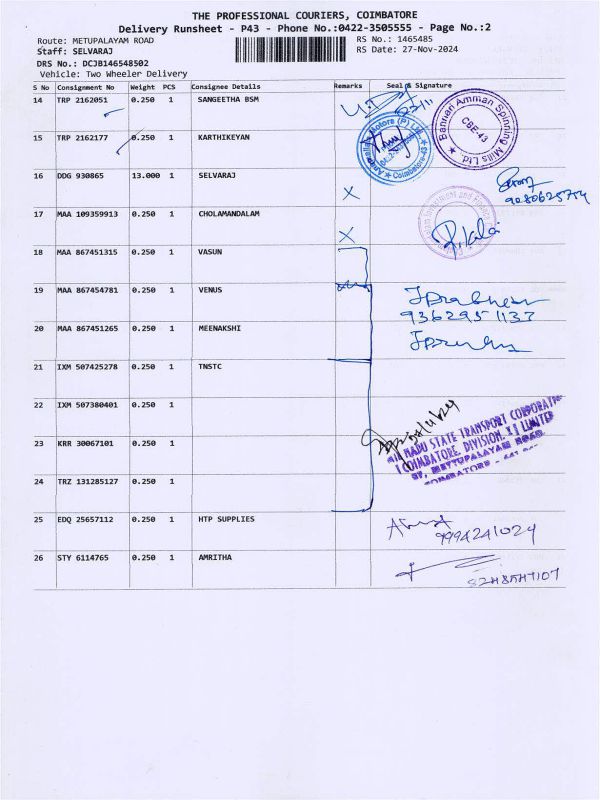 THE PROFESSIONAL COURIERS, COIMBATORE
Delivery Runsheet - P43 - Phone No.:0422-3505555 - Page No.:2
Route: METUPALAYAM ROAD
RS No.: 1465485
Staff: SELVARAJ
RS Date: 27-Nov-2024
DRS No.: DCJB146548502
Vehicle: Two Wheeler Delivery
S No Consignment No Weight PCS Consignee Details Remarks Seal & Signature
14 TRP 2162051 0.250 1 SANGEETHA BSM
Bannari Amman Spinning Mills Ltd.
CBE-43
Motors (P) Ltd.
Coimbatore-43
15 TRP 2162177 0.250 1 KARTHIKEYAN
16 DDG 930865 13.000 1 SELVARAJ X
9080625754
17 MAA 109359913 0.250 1 CHOLAMANDALAM X
Investment and
18 MAA 867451315 0.250 1 VASUN
19 MAA 867454781 0.250 1 VENUS
9362951133
20 MAA 867451265 0.250 1 MEENAKSHI
21 IXM 507425278 0.250 1 TNSTC
22 IXM 507380401 0.250 1
NADU STATE TRANSPORT CORPORATI
(COIMBATORE, DIVISION, I) LIMITED
METTUPALAYAM ROAD,
COIMBATORE - 641
23 KRR 30067101 0.250 1
24 TRZ 131285127 0.250 1
25 EDQ 25657112 0.250 1 HTP SUPPLIES
9994241024
26 STY 6114765 0.250 1 AMRITHA